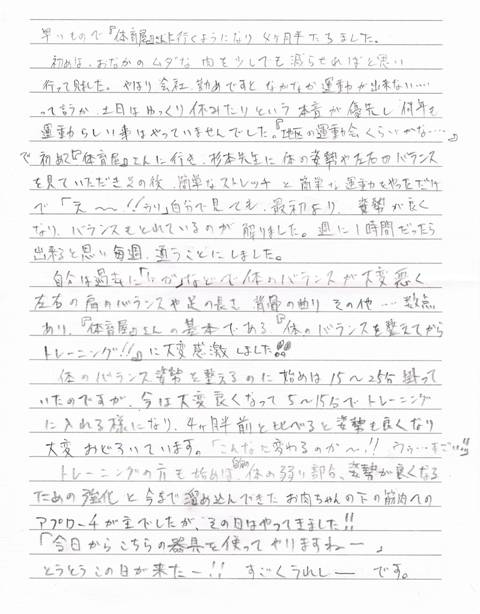 早いもので『体育屋』さんに行くようになり4ヶ月半たちました。
初めは、おなかのムダな肉を少しでも減らせればと思い
行って見れた。やはり会社勤めですとなかなか運動が出来ない…
って言うか、土日はゆっくり休みたりという本音が優先し何年も
運動らしい事はやっていませんでした。『地区の運動会くらいかな…』
で初めて『体育屋』さんに行き、杉本先生に体の姿勢や左右のバランス
を見ていただき その後、簡単なストレッチと簡単な運動をやっただけ
で「え〜!!」自分で見ても、最初より、姿勢が良く
なり、バランスもとれているのが解りました。週に1時間だったら
出来ると思い毎週、通うことにしました。
自分は過去に などで体のバランスが大変悪く
左右の肩のバランスや足の長さ 背骨の曲り その他…数点
あり、『体育屋』さんの基本である『体のバランスを整えてから
トレーニング!!』に大変感激しました!!
体のバランス姿勢を整えるのに始めは15〜25分掛って
いたのですが、今は大変良くなって5〜15分でトレーニング
に入れる様になり、4ヶ月半前と比べると姿勢も良くなり
大変おどろいています。「こんなに変わるのか〜!!うぅ…すごい!!」
トレーニングの方も始めは 体の弱い部分、姿勢が良くなる
ための強化と今まで溜め込んできたお肉ちゃんの下の筋肉への
アプローチが主でしたが、その日はやってきました!!
「今日からこちらの器具を使ってやりますねー」
とうとうこの日が来たー!! すごくうれしー です。